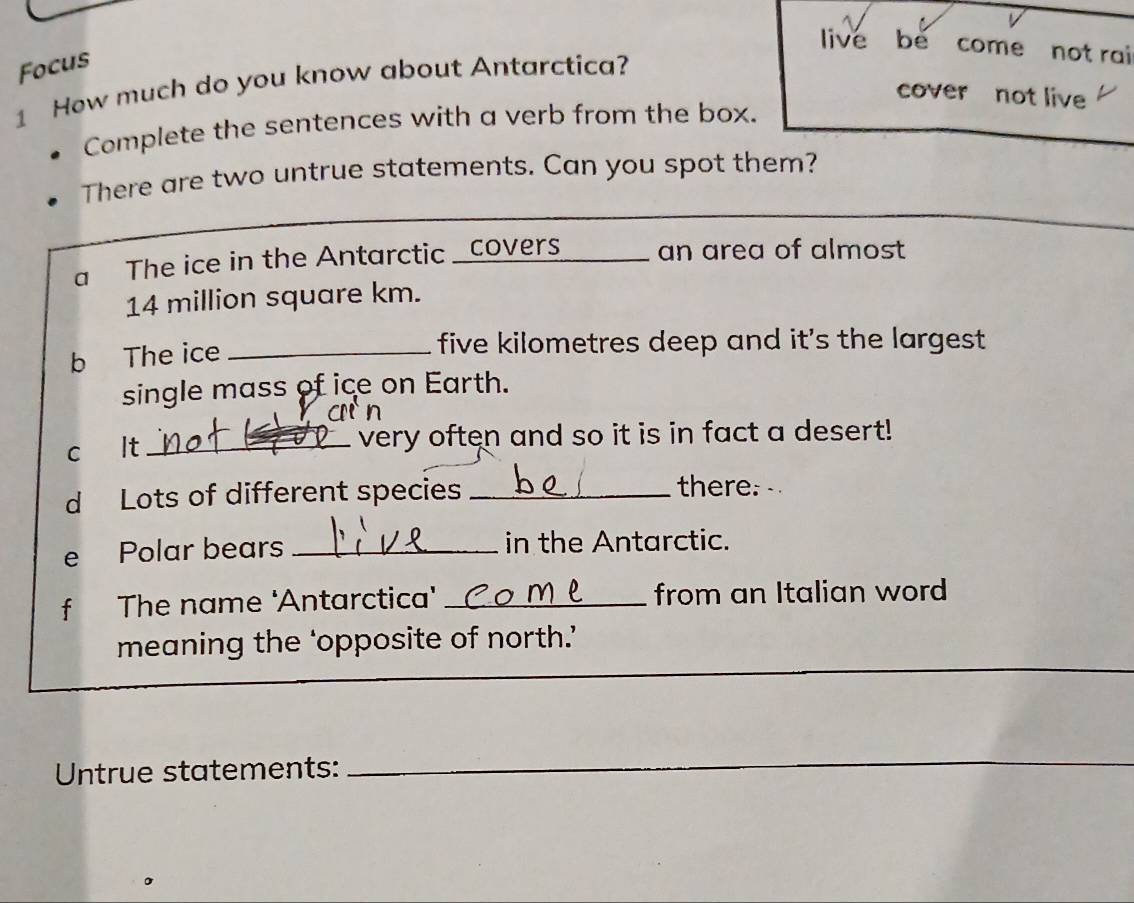 live be come not rai
Focus
1 How much do you know about Antarctica?
cover not live
• Complete the sentences with a verb from the box.
• There are two untrue statements. Can you spot them?
a The ice in the Antarctic covers an area of almost
14 million square km.
b The ice ____________ five kilometres deep and it's the largest
single mass of ice on Earth.
rain
c It not very often and so it is in fact a desert!
d Lots of different species be there.
e Polar bears live in the Antarctic.
f The name 'Antarctica' come from an Italian word
meaning the 'opposite of north.'
Untrue statements: ____________